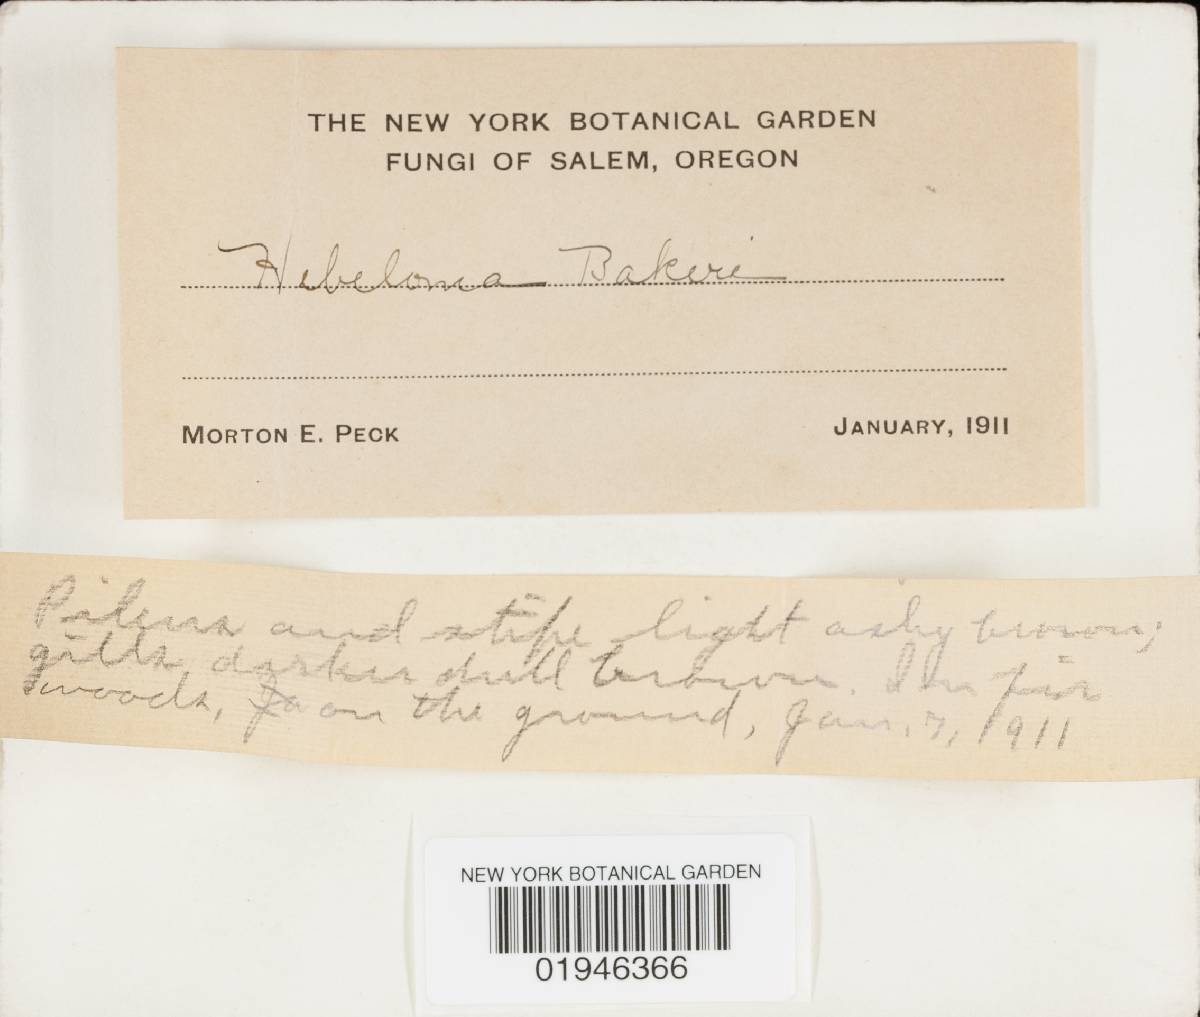 THE NEW YORK BOTANICAL GARDEN
FUNGI OF SALEM, OREGON
Hebeloma Bakeri
MORTON E. PECK
JANUARY, 1911
Pileus and stipe light ashy brown;
gills darker dull brown. In fir
woods, on the ground, Jan. 7, 1911
NEW YORK BOTANICAL GARDEN
01946366